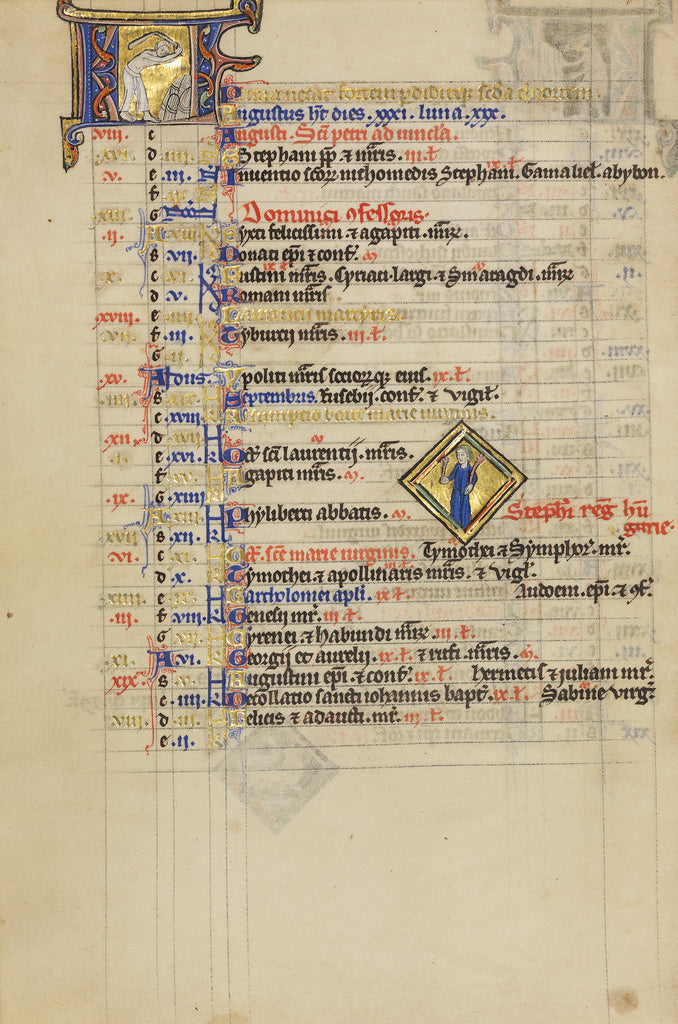 Prima necat fortem perditque secunda cohortem.
Augustus hr̄ dies .xxxi. luna .xxx.
viii. c Augusti. Scī petri ad uincla.
xvi. d .iiii. N Stephani pp̄ ⁊ mr̄is. iii. ł.
v. e .iii. N Inuentio scōꝝ nichomedis Stephani. Gamaliel. abybon. ix. ł.
f
xiii. G Non Dominici ꝯfessoris.
.ii. A .viii. Syxti felicissimi ⁊ agapiti. mr̄ꝝ.
b .vii. Donati ep̄i ⁊ conf.
.x. c .vi. Iustini mr̄is. Cyriaci. largi. ⁊ Smaragdi. mr̄ꝝ
d .v. Romani mr̄is.
xviii. e .iiii. Laurentii martyris.
vii. f .iii. Tyburcii mr̄is. iii. ł.
G .ii.
.xv. A Idus. Ypoliti mr̄is socioꝝq; eius. ix. ł.
.iiii. b .xix. Septembris. Eusebii. conf. ⁊ vigil.
c .xviii. Assumptio beate marie uirginis.
.xii. d .xvii.
.i. e .xvi. kł Oct̄. scī laurentii. mr̄is.
f .xv. Agapiti mr̄is. m̄.
.ix. G .xiiii.
A .xiii. kł Phyliberti abbatis. m̄. Stephī reg̃ hun
garie.
xvii. b .xii. kł
vi. c .xi. Oct̄. scē marie uirginis. Tymothei ⁊ Symphor̃. mr̃.
d .x. Tymothei ⁊ apollinaris mr̄is. ⁊ vigł.
xiiii. e .ix. Bartholomei apłi. ix. ł. Audoeni. ep̄i. ⁊ ꝯf.
.iii. f .viii. kł Genesii mr̃. iii. ł.
G .vii. Cyrenei ⁊ habundi mr̄ꝝ. iii. ł.
.xi. A .vi. Georgii et aurelii. ix. ł. ⁊ rufi. mr̄is. m̄.
xix. b .v. Augustini ep̄i. ⁊ conf. ix. ł. hermetis ⁊ iuliani mr̃.
c .iiii. kł Decollatio sancti iohannis bapt̃. ix. ł. Sabine virg̃.
viii. d .iii. Felicis ⁊ adaucti. mr̃. iii. ł.
e .ii.